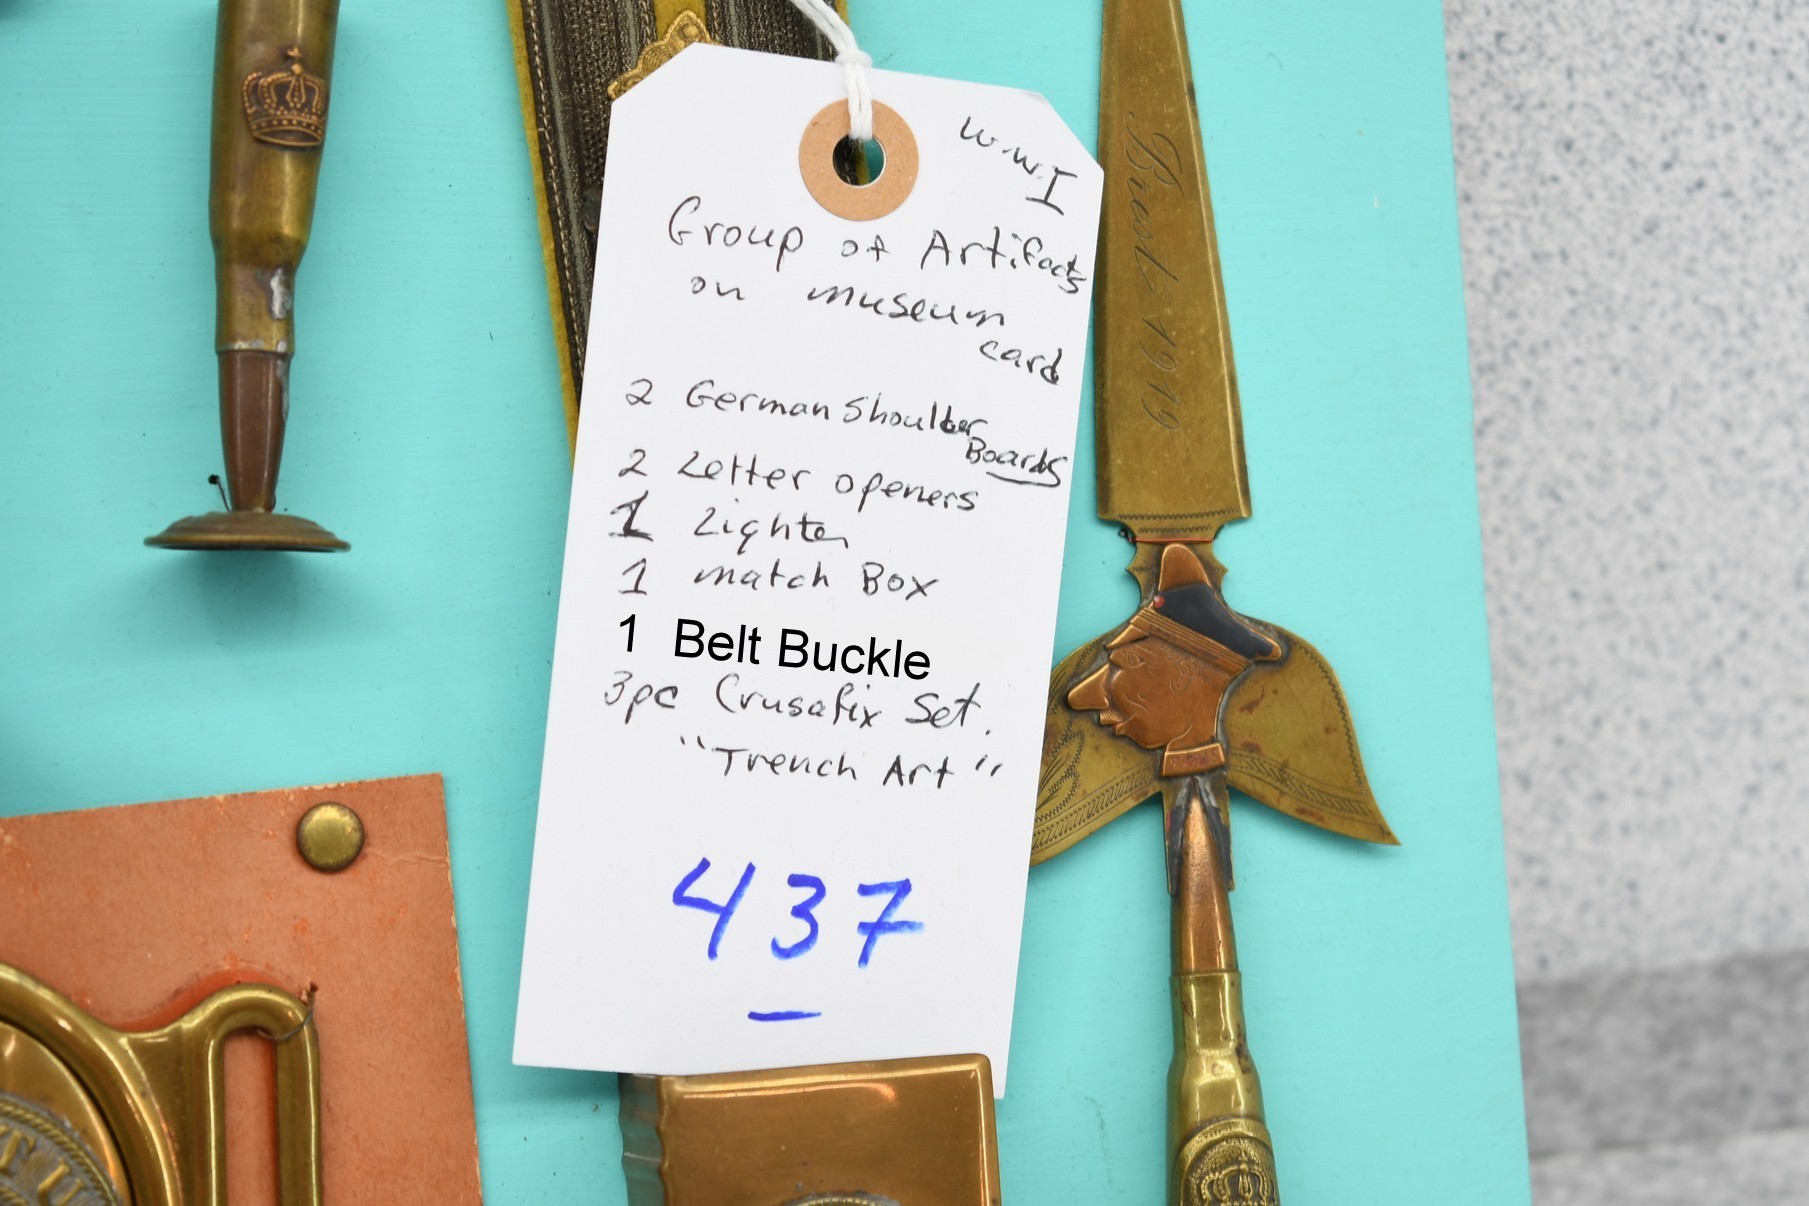 W.W.I
Group of Artifacts
on museum
card
2 German Shoulder
Boards
2 Letter openers
1 Lighter
1 match Box
1 Belt Buckle
3pc Crusafix Set.
"Trench Art"
437
Brest 1919